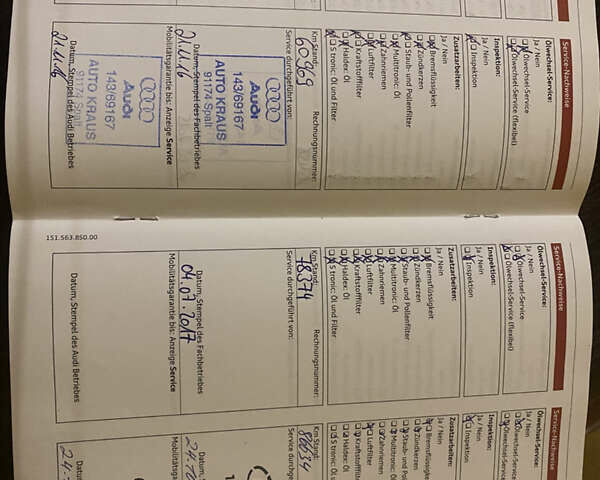 Service-Nachweise
Ölwechsel-Service:
Ja / Nein
Ölwechsel-Service
Ölwechsel-Service (flexibel)
Inspektion:
Ja / Nein
Inspektion
Zusatzarbeiten:
Ja / Nein
Bremsflüssigkeit
Zündkerzen
Staub- und Pollenfilter
Multitronic: Öl
Zahnriemen
Luftfilter
Kraftstofffilter
Haldex: Öl
S tronic: Öl und Filter
Km Stand: Rechnungsnummer:
60969
Service durchgeführt von:
Audi
143/69167
AUTO KRAUS
91174 Spalt
Datum, Stempel des Fachbetriebes
21.11.16
Mobilitätsgarantie bis: Anzeige Service
Audi
143/69167
AUTO KRAUS
91174 Spalt
Datum, Stempel des Audi Betriebes
21.11.16
151.563.850.00
Service-Nachweise
Ölwechsel-Service:
Ja / Nein
Ölwechsel-Service
Ölwechsel-Service (flexibel)
Inspektion:
Ja / Nein
Inspektion
Zusatzarbeiten:
Ja / Nein
Bremsflüssigkeit
Zündkerzen
Staub- und Pollenfilter
Multitronic: Öl
Zahnriemen
Luftfilter
Kraftstofffilter
Haldex: Öl
S tronic: Öl und Filter
Km Stand: Rechnungsnummer:
78374
Service durchgeführt von:
Datum, Stempel des Fachbetriebes
04.07.2017
Mobilitätsgarantie bis: Anzeige Service
Datum, Stempel des Audi Betriebes
Service-Nachweise
Ölwechsel-Service:
Ja / Nein
Ölwechsel-Service
Ölwechsel-Se
Inspektion:
Ja / Nein
Inspektion
Zusatzarbeiten:
Ja / Nein
Bremsflüssigkeit
Zündkerzen
Staub- und Poll
Multitronic: Öl
Zahnriemen
Luftfilter
Kraftstofffilter
Haldex: Öl
S tronic: Öl und
Km Stand:
88634
Service durchge
Datum,
Mobilitätsga
Datum,